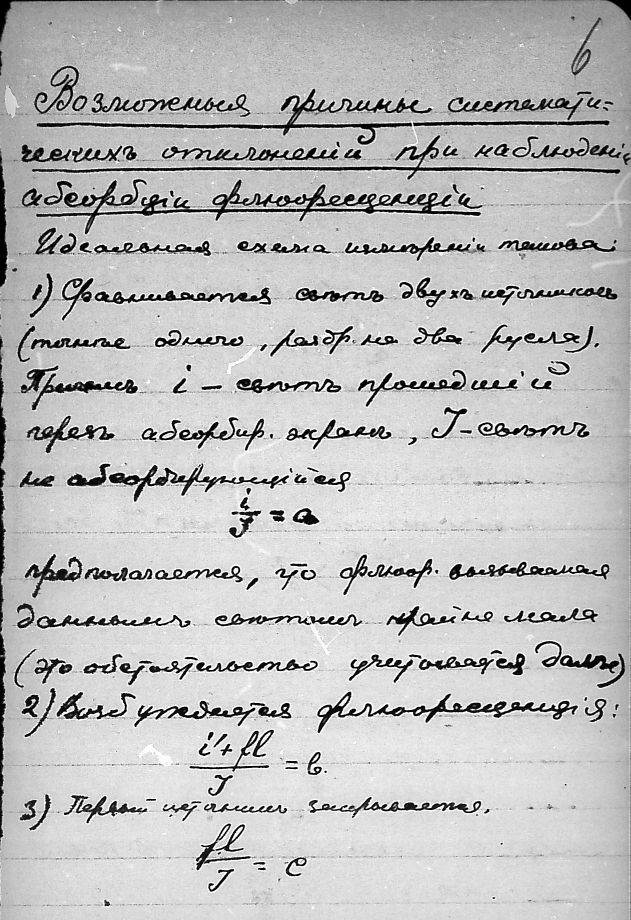 6
Возможныя причины системати-
ческихъ отклоненій при наблюденіи
абсорбціи флюоресценціи
Идеальная схема измѣреній такова:
1) Сравнивается свѣтъ двухъ источниковъ
(точнѣе одного, разбр. на два русла).
Причемъ i – свѣтъ прошедшій
черезъ абсорбир. экранъ, J – свѣтъ
не абсорбирующійся
i/J = a
предполагается, что флюор. вызываемая
даннымъ свѣтомъ крайне мала
(это обстоятельство учитывается далѣе)
2) Возбуждается флюоресценція:
(i'+fl)/J = b.
3) Первый источникъ закрывается.
fl/J = c